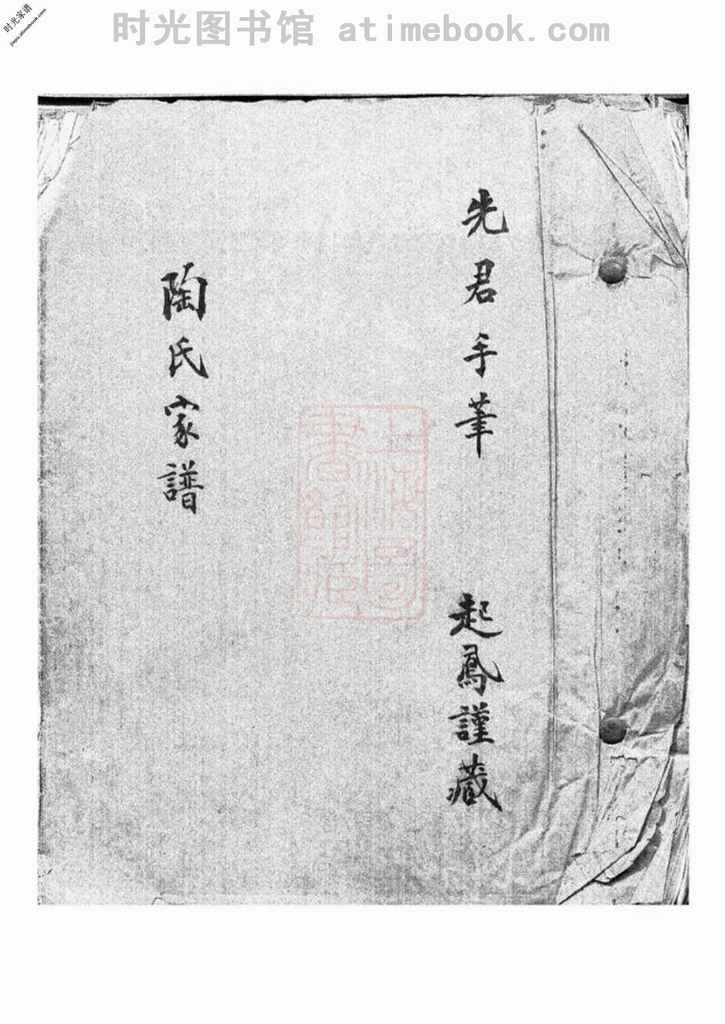 时光图书馆 atimebook.com
时光家谱
先君手筆
起鳳謹藏
陶氏家譜